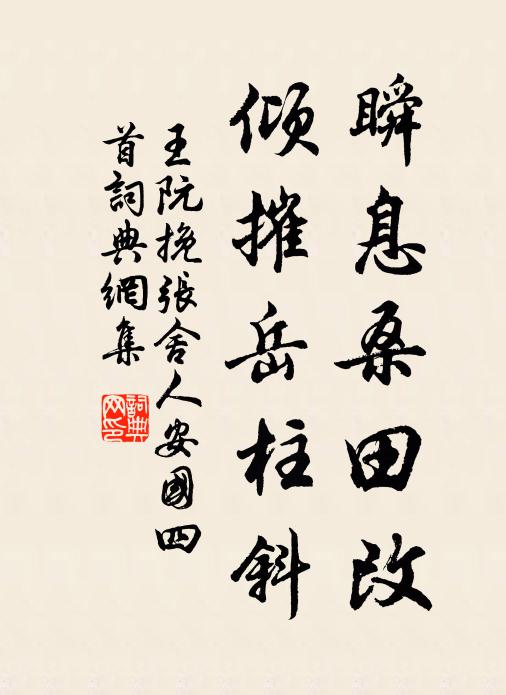 瞬息桑田改
傾摧岳柱斜
王阮挽張舍人安國四
首詞典網集
詞典网印